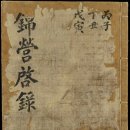 丙子
丁丑
戊寅
錦營啓錄